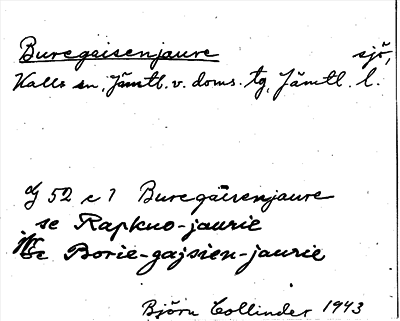 Buregaisenjaure sjö,
Kalls sn, Jämtl. v. doms. tg, Jämtl. l.
52 c 1 Buregaisenjaure
se Rapkuo-jaurie
Borie-gajsien-jaurie
Björn Collinder 1943